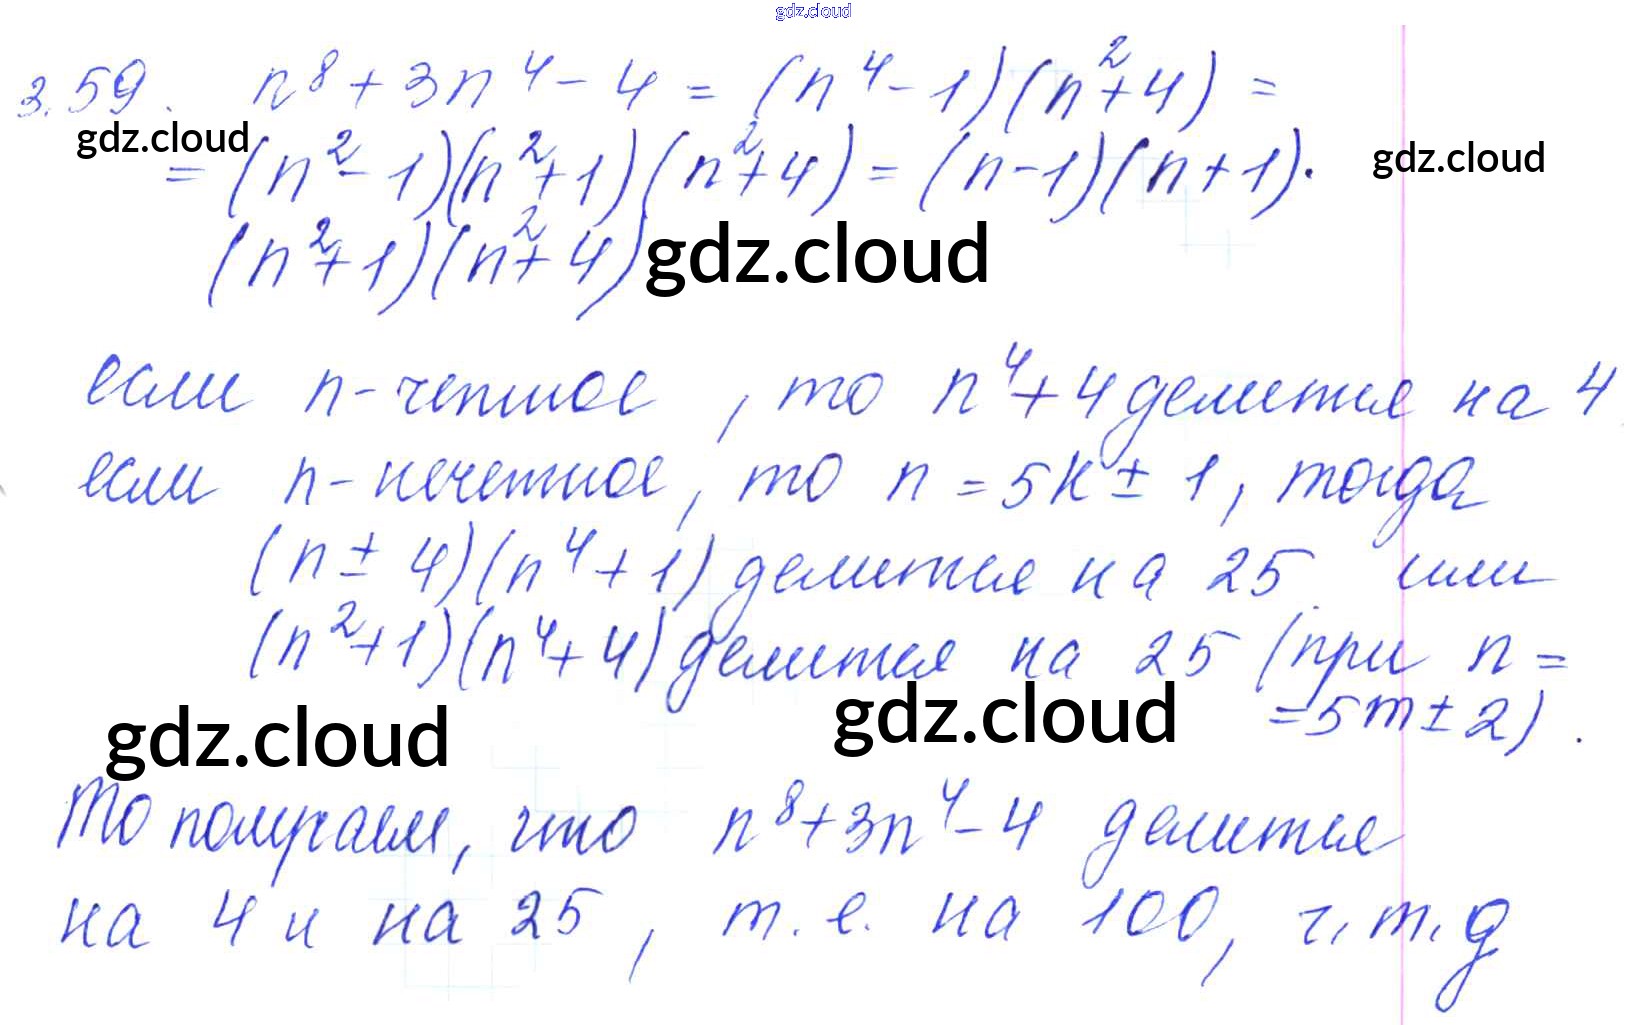 gdz.cloud
3.59. n⁸ + 3n⁴ - 4 = (n⁴ - 1)(n² + 4) =
gdz.cloud
= (n² - 1)(n² + 1)(n² + 4) = (n - 1)(n + 1)·
gdz.cloud
(n² + 1)(n² + 4)
gdz.cloud
если n - четное, то n⁴ + 4 делится на 4
если n - нечетное, то n = 5k ± 1, тогда
(n ± 4)(n⁴ + 1) делится на 25 или
(n² + 1)(n⁴ + 4) делится на 25 (при n =
= 5m ± 2).
gdz.cloud
gdz.cloud
То получаем, что n⁸ + 3n⁴ - 4 делится
на 4 и на 25, т.е. на 100, ч.т.д